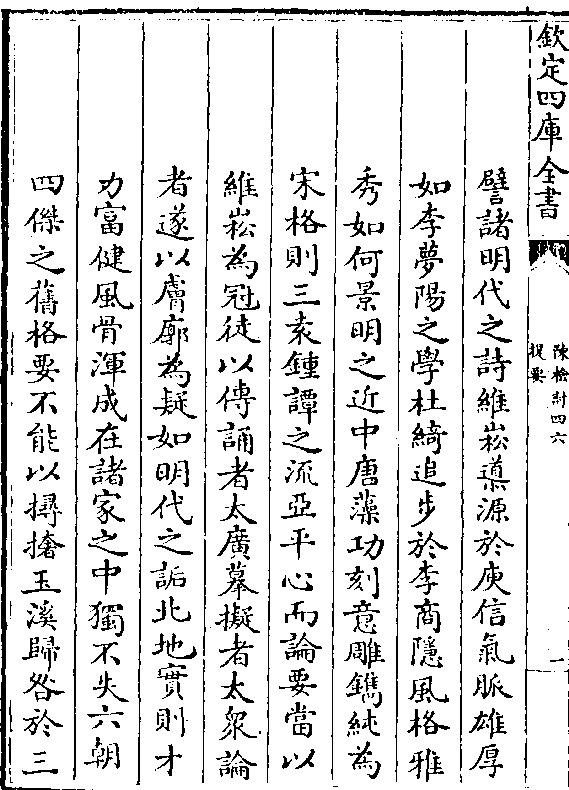 欽定四庫全書
陳檢討四六
提要
一
譬諸明代之詩維崧導源於庾信氣脈雄厚
如李夢陽之學杜綺追步於李商隱風格雅
秀如何景明之近中唐藻功刻意雕鐫純為
宋格則三袁鍾譚之流亞平心而論要當以
維崧為冠徒以傳誦者太廣摹擬者太衆論
者遂以膚廓為疑如明代之詬北地實則才
力富健風骨渾成在諸家之中獨不失六朝
四傑之舊格要不能以撏撦玉溪歸咎於三